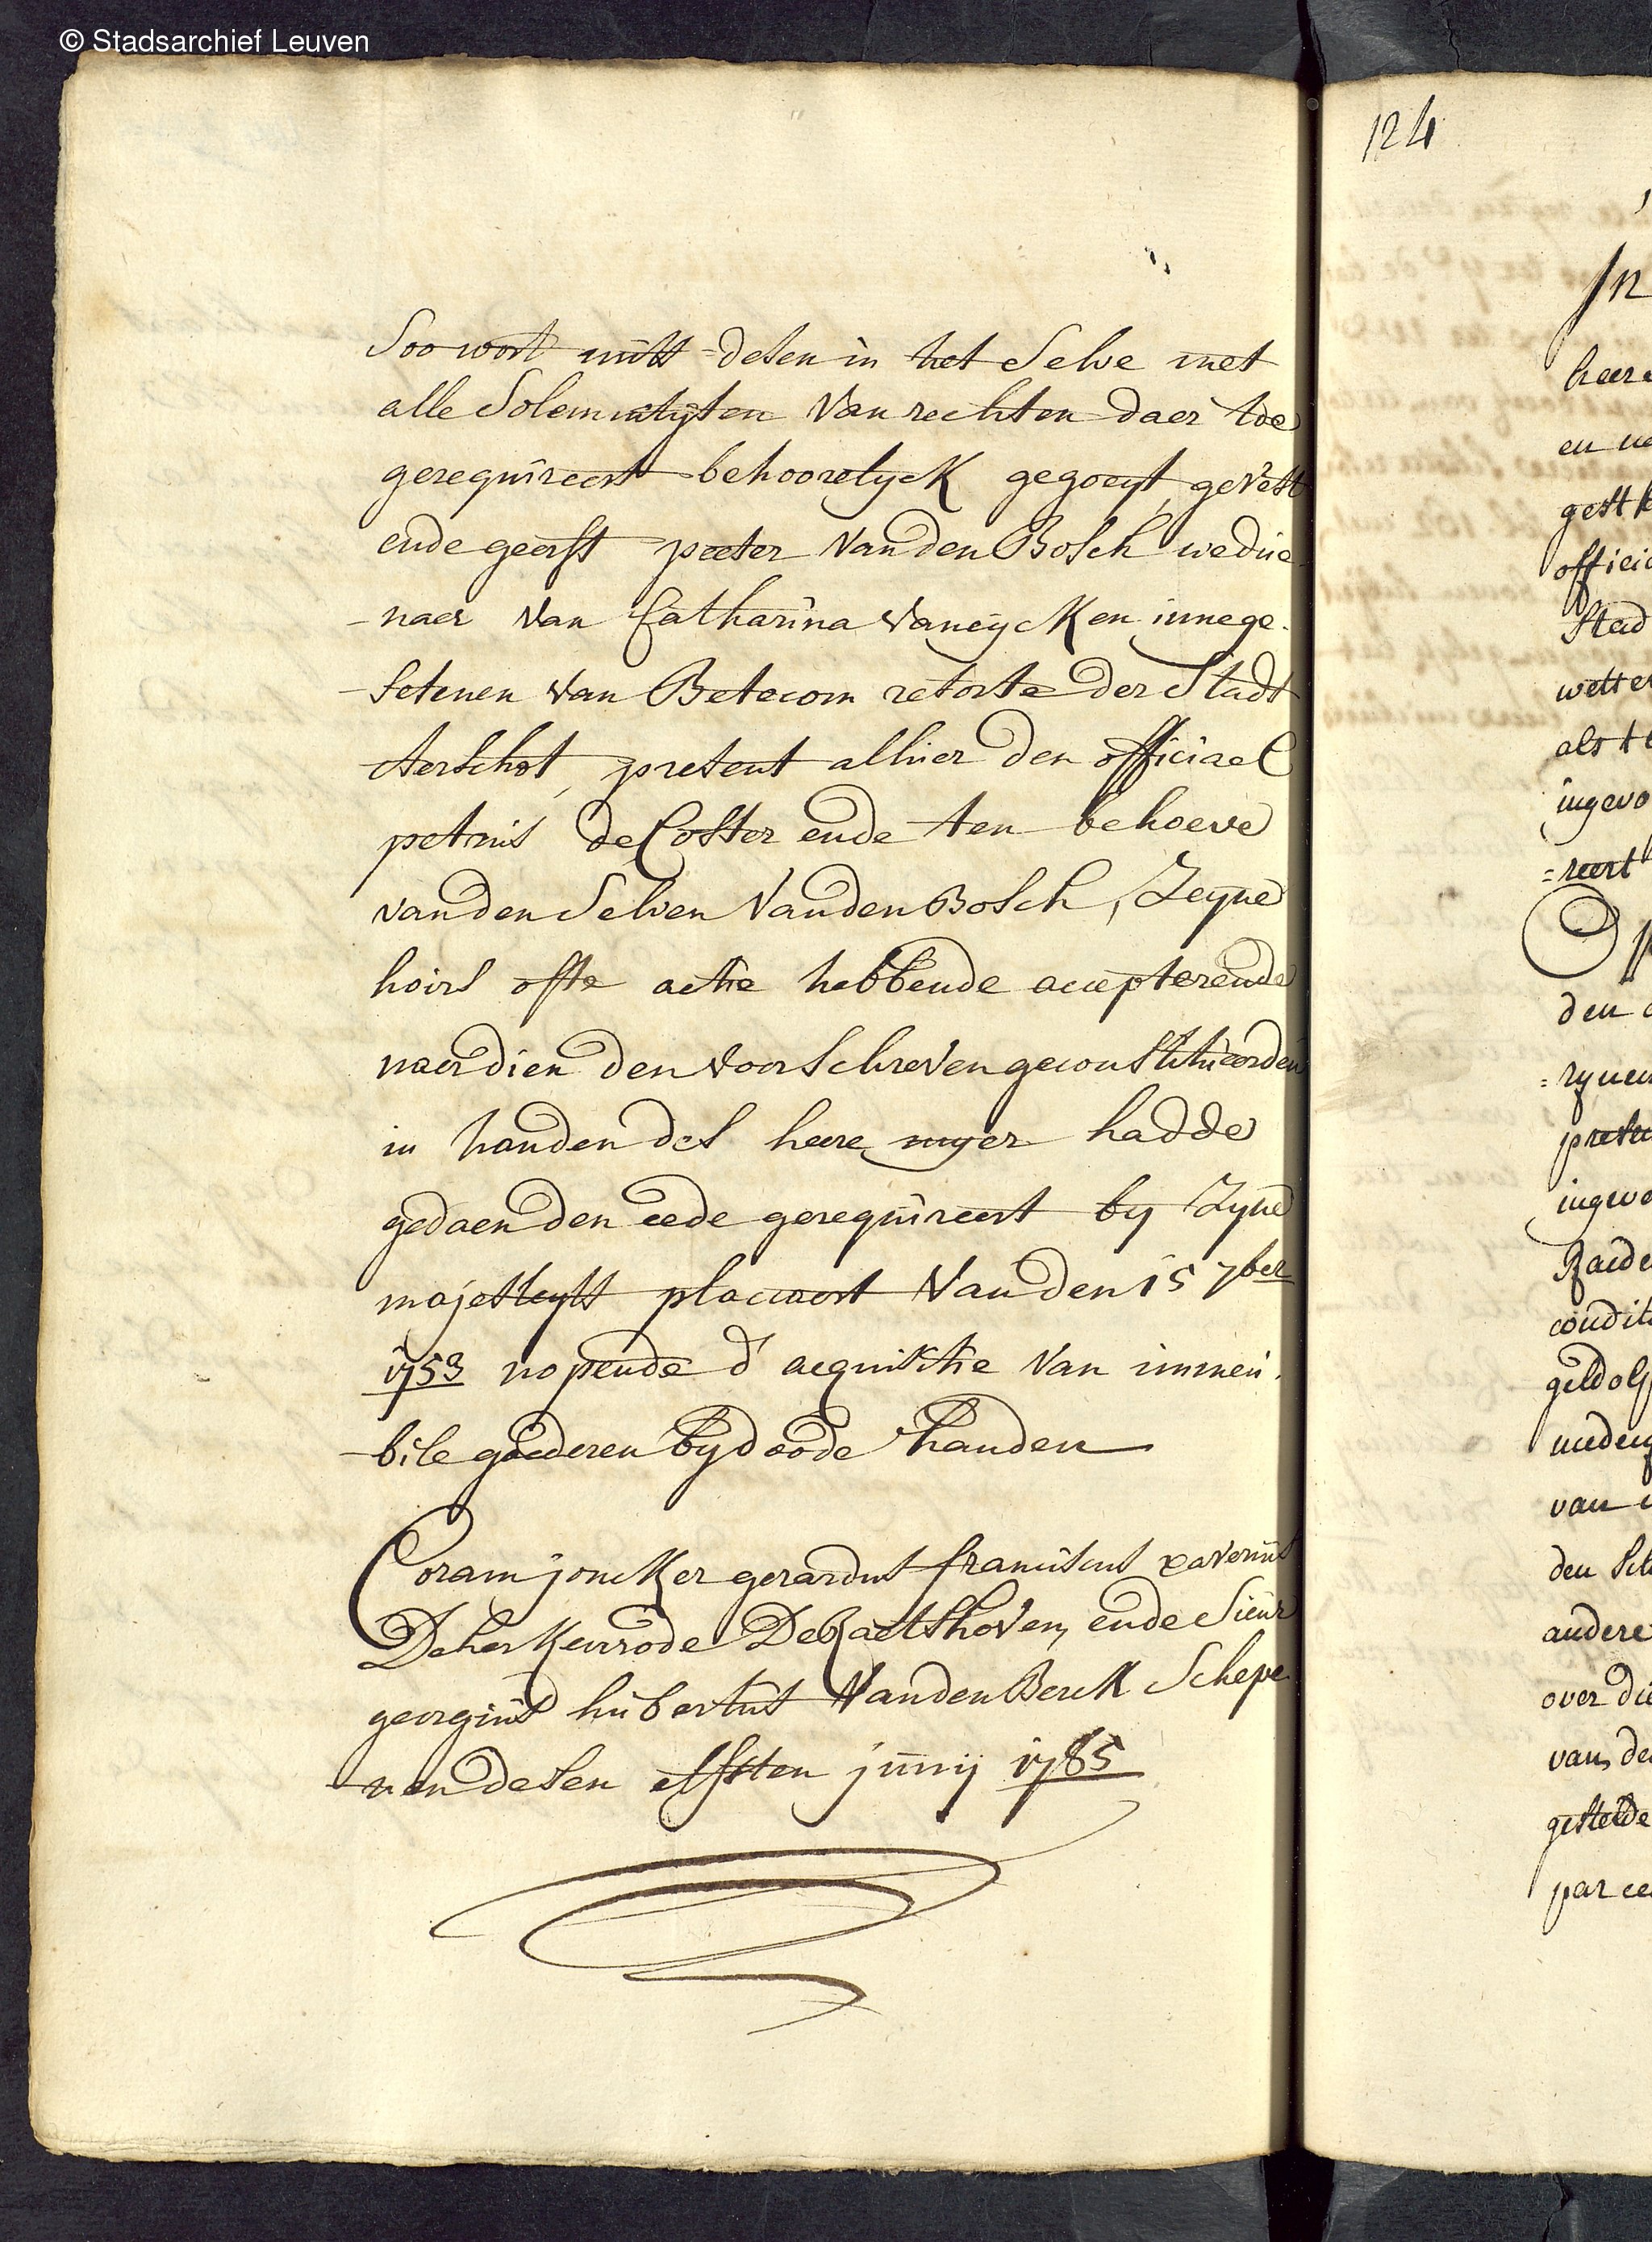 © Stadsarchief Leuven
Soo wort mitts desen in het selve met
alle solemnityten van rechten daer toe
gerequireert behoorelyck gegoeyt, gevest
ende geerft peeter vanden Bosch wedue
-naer van Catharina vaneycken innege-
-setenen van Betecom retorte der stadt
Aerschot, present alhier den officiael
petrus de Coster ende ten behoeve
vanden selven vanden Bosch, Zeyne
hoirs ofte actie hebbende accepterende
naerdien den voorschreven geconstitueerden
in handen des heere meyer hadde
gedaen den eede gerequireert by Zyne
majesteyts placcaert vanden 15 7ber
1753 nopende d'acquisitie van immeu-
-bile goederen by doode handen
Coram joncker gerardus franciscus xaverius
De herckenrode De Raetshoven, ende sieur
georgius hubertus vanden Berck schepe-
-nen desen elfsten junij 1785
124
In
heere
en
gest
offici
stad
wette
als t
ingevo
=reert
den
=rynen
presen
ingevo
Raede
condit
geldolf
meden
van
den
andere
over die
van de
gestelde
parcee